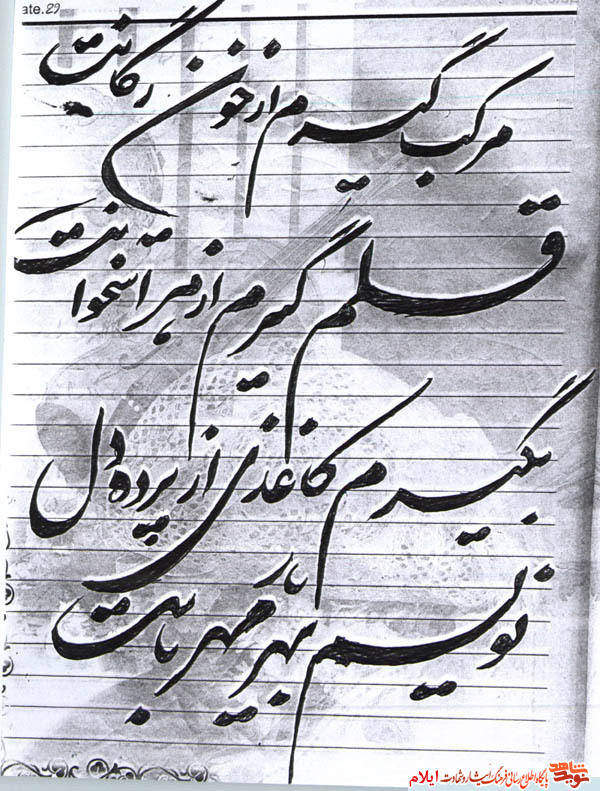 ate.29
مرکب گیرم از خون رگانت
قلم گیرم از هر استخوانت
بگیرم کاغذی از پرده دل
نویسم بهر یار مهربانت
نوید شاهد پایگاه اطلاع رسانی فرهنگ ایثار و شهادت ایلام